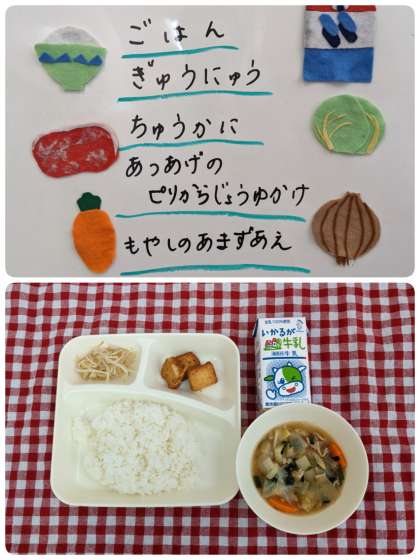 ごはん
ぎゅうにゅう
ちゅうかに
あつあげの
ピリからじょうゆかけ
もやしのあまずあえ
いかるが
牛乳